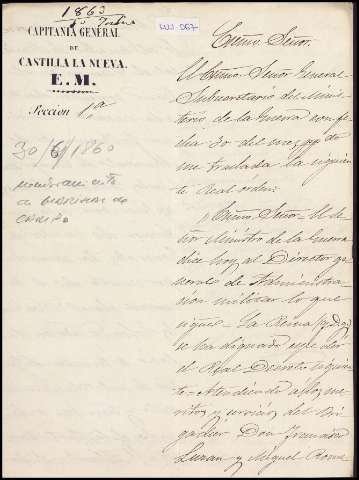 1863
CAPITANÍA GENERAL
DE
CASTILLA LA NUEVA.
E. M.
Seccion 1.ª
30/6/1860
nombramiento
de
Exmo. Señor.
El Exmo. Señor General
Subsecretario del Minis-
terio de la Guerra con fe-
cha 30 del mes pp. de
me traslada la siguien
te Real órden:
"Exmo. Señor = El Se-
ñor Ministro de la Guerra
dice hoy al Director ge-
neral de Administra-
cion militar lo que
sigue = La Reina (q. D. g.)
se ha dignado expedir
el Real Decreto siguien
te = Atendiendo á los mé-
ritos y servicios del Bri-
gadier Don Francisco
Luxan y Miguel Rome